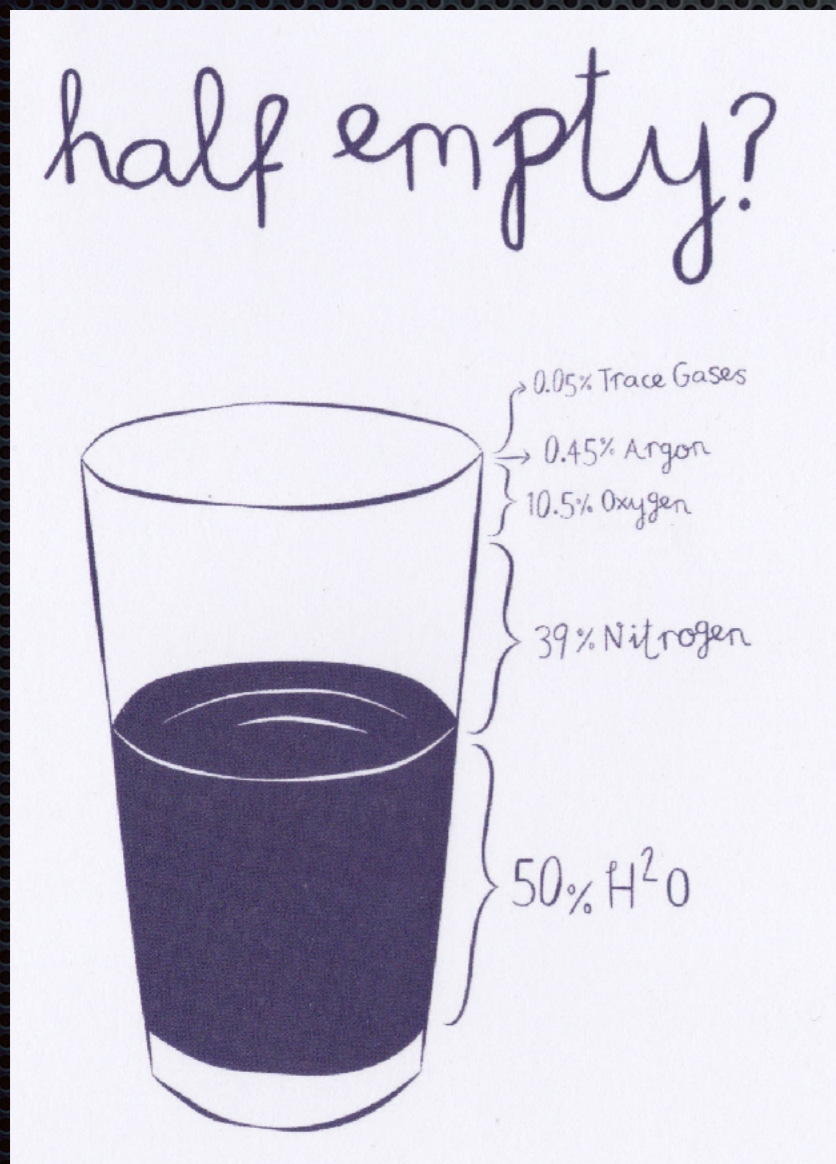 half empty?
0.05% Trace Gases
0.45% Argon
10.5% Oxygen
39% Nitrogen
50% H²O